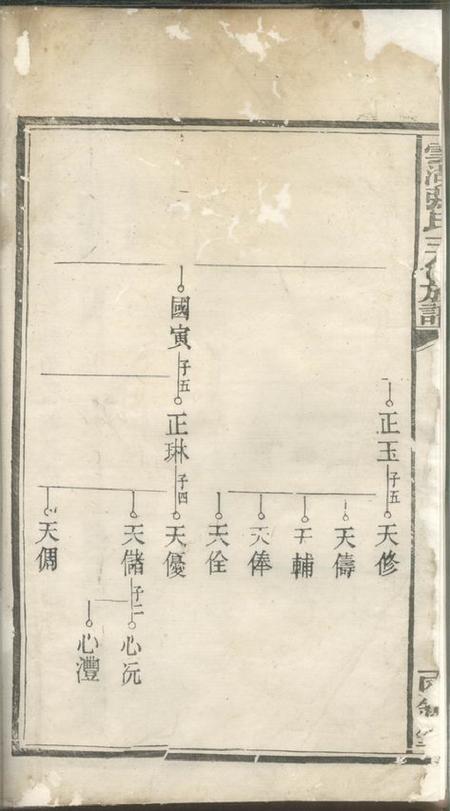 張氏三修族譜
正玉 子五
天修
天儔
天輔
天俸
天佺
國寅 子五
正琳 子四
天優
天儲 子二
天倜
心沅
心灃